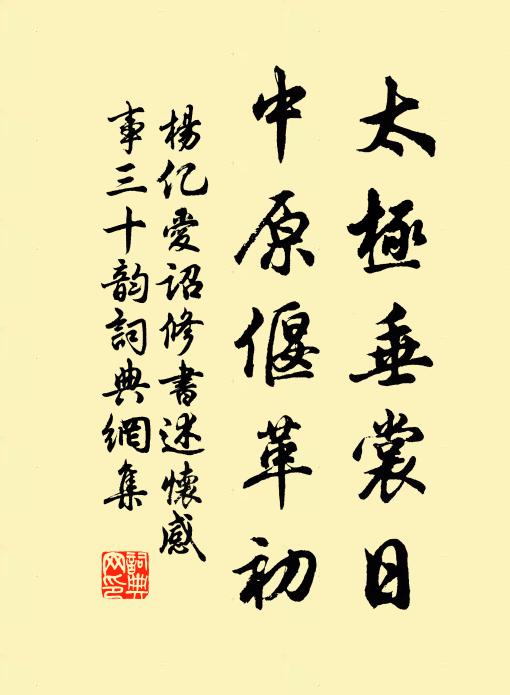 太極垂裳日
中原偃革初
楊亿受詔修書述懷感
事三十韵詞典網集
詞典
网印